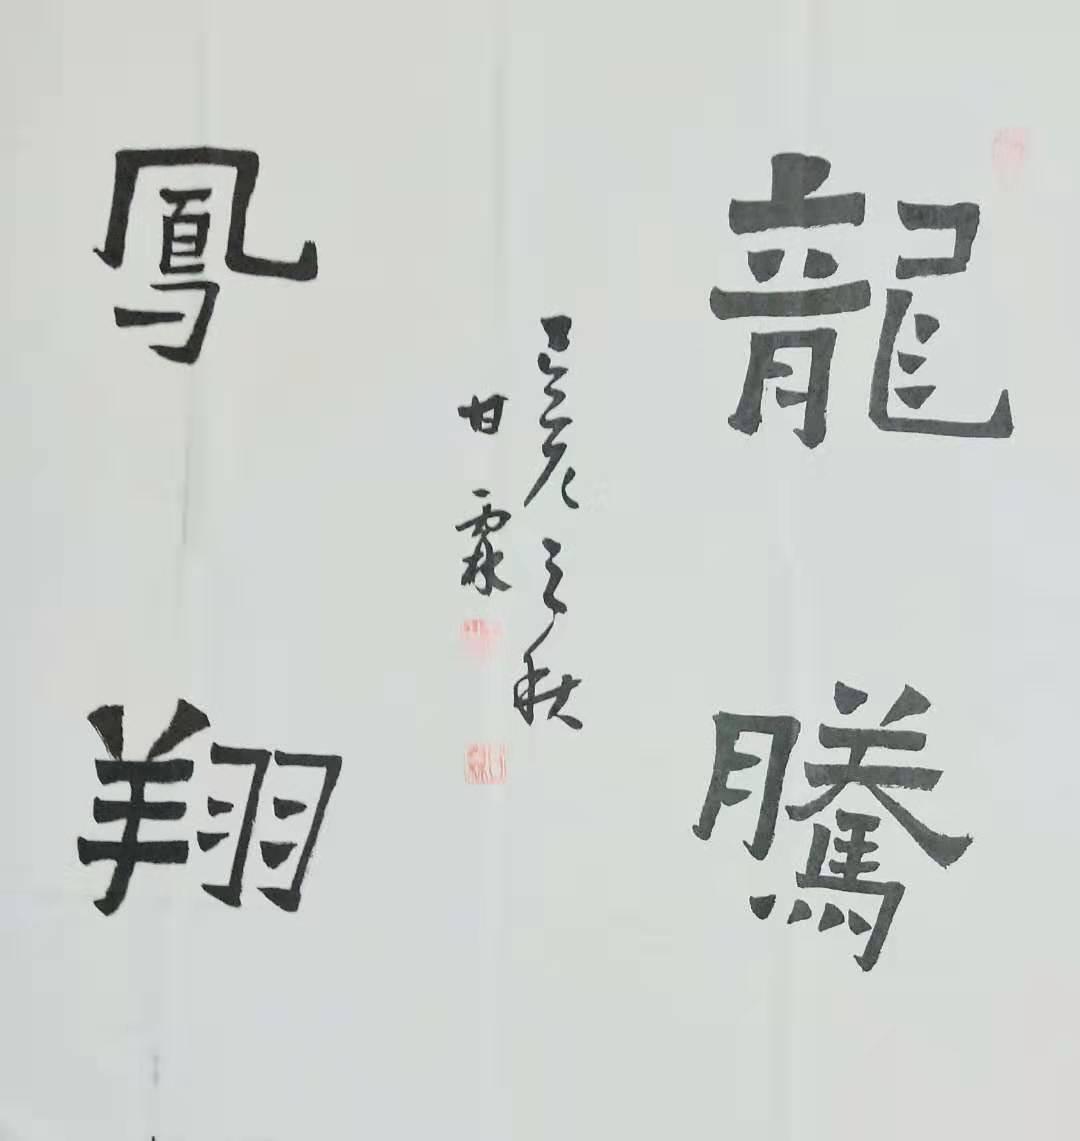 龍騰
鳳翔
之秋
甘霖